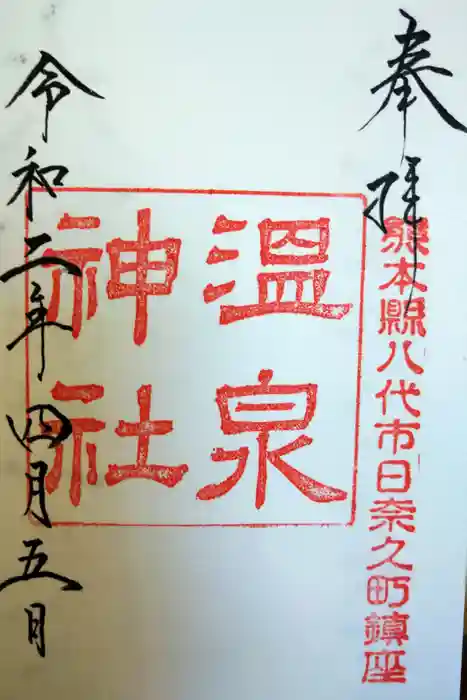 奉拝
熊本縣八代市日奈久町鎮座
温泉
神社
令和二年四月五日